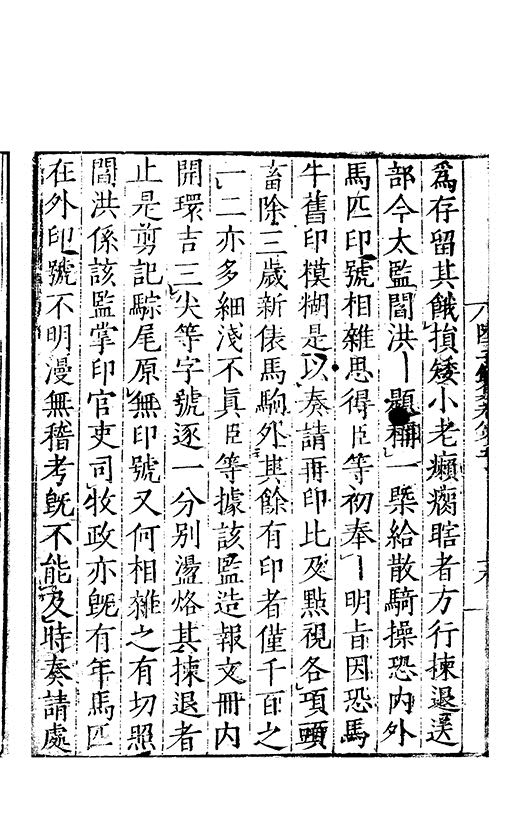 爲存留其餓損矮小老癩瘸瞎者方行揀退送
部今太監閻洪題稱一槩給散騎操恐内外
馬匹印號相雜思得臣等初奉明旨因恐馬
牛舊印模糊是以奏請再印比及點視各項頭
畜除三歲新俵馬駒外其餘有印者僅千百之
一二亦多細淺不眞臣等據該監造報文冊内
開環吉三尖等字號逐一分別盪烙其揀退者
止是剪記騣尾原無印號又何相雜之有切照
閻洪係該監掌印官吏司牧政亦旣有年馬匹
在外印號不明漫無稽考旣不能及時奏請處